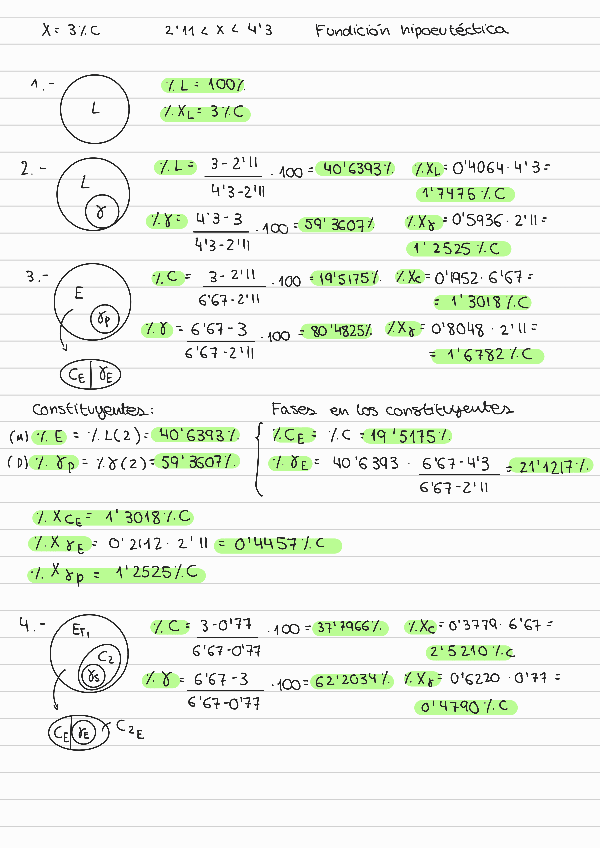 X = 3%C 2'11 < X < 4'3 Fundición hipoeutéctica
1.- L %L = 100%
%X_L = 3%C
2.- L γ %L = (3-2'11)/(4'3-2'11) · 100 = 40'6393% %X_L = 0'4064 · 4'3 =
1'7476%C
%γ = (4'3-3)/(4'3-2'11) · 100 = 59'3607% %X_γ = 0'5936 · 2'11 =
1'2525%C
3.- E γ_P %C = (3-2'11)/(6'67-2'11) · 100 = 19'5175% %X_C = 0'1952 · 6'67 =
= 1'3018%C
%γ = (6'67-3)/(6'67-2'11) · 100 = 80'4825% %X_γ = 0'8048 · 2'11 =
= 1'6782%C
C_E | γ_E
Constituyentes: Fases en los constituyentes
(M) %E = %L(2) = 40'6393% %C_E = %C = 19'5175%
(D) %γ_P = %γ(2) = 59'3607% %γ_E = 40'6393 · (6'67-4'3)/(6'67-2'11) = 21'1217%
%X_C_E = 1'3018%C
%X_γ_E = 0'2112 · 2'11 = 0'4457%C
%X_γ_P = 1'2525%C
4.- E_T1 C_2 γ_S %C = (3-0'77)/(6'67-0'77) · 100 = 37'7966% %X_C = 0'3779 · 6'67 =
2'5210%C
%γ = (6'67-3)/(6'67-0'77) · 100 = 62'2034% %X_γ = 0'6220 · 0'77 =
0'4790%C
C_E γ_E C_2E